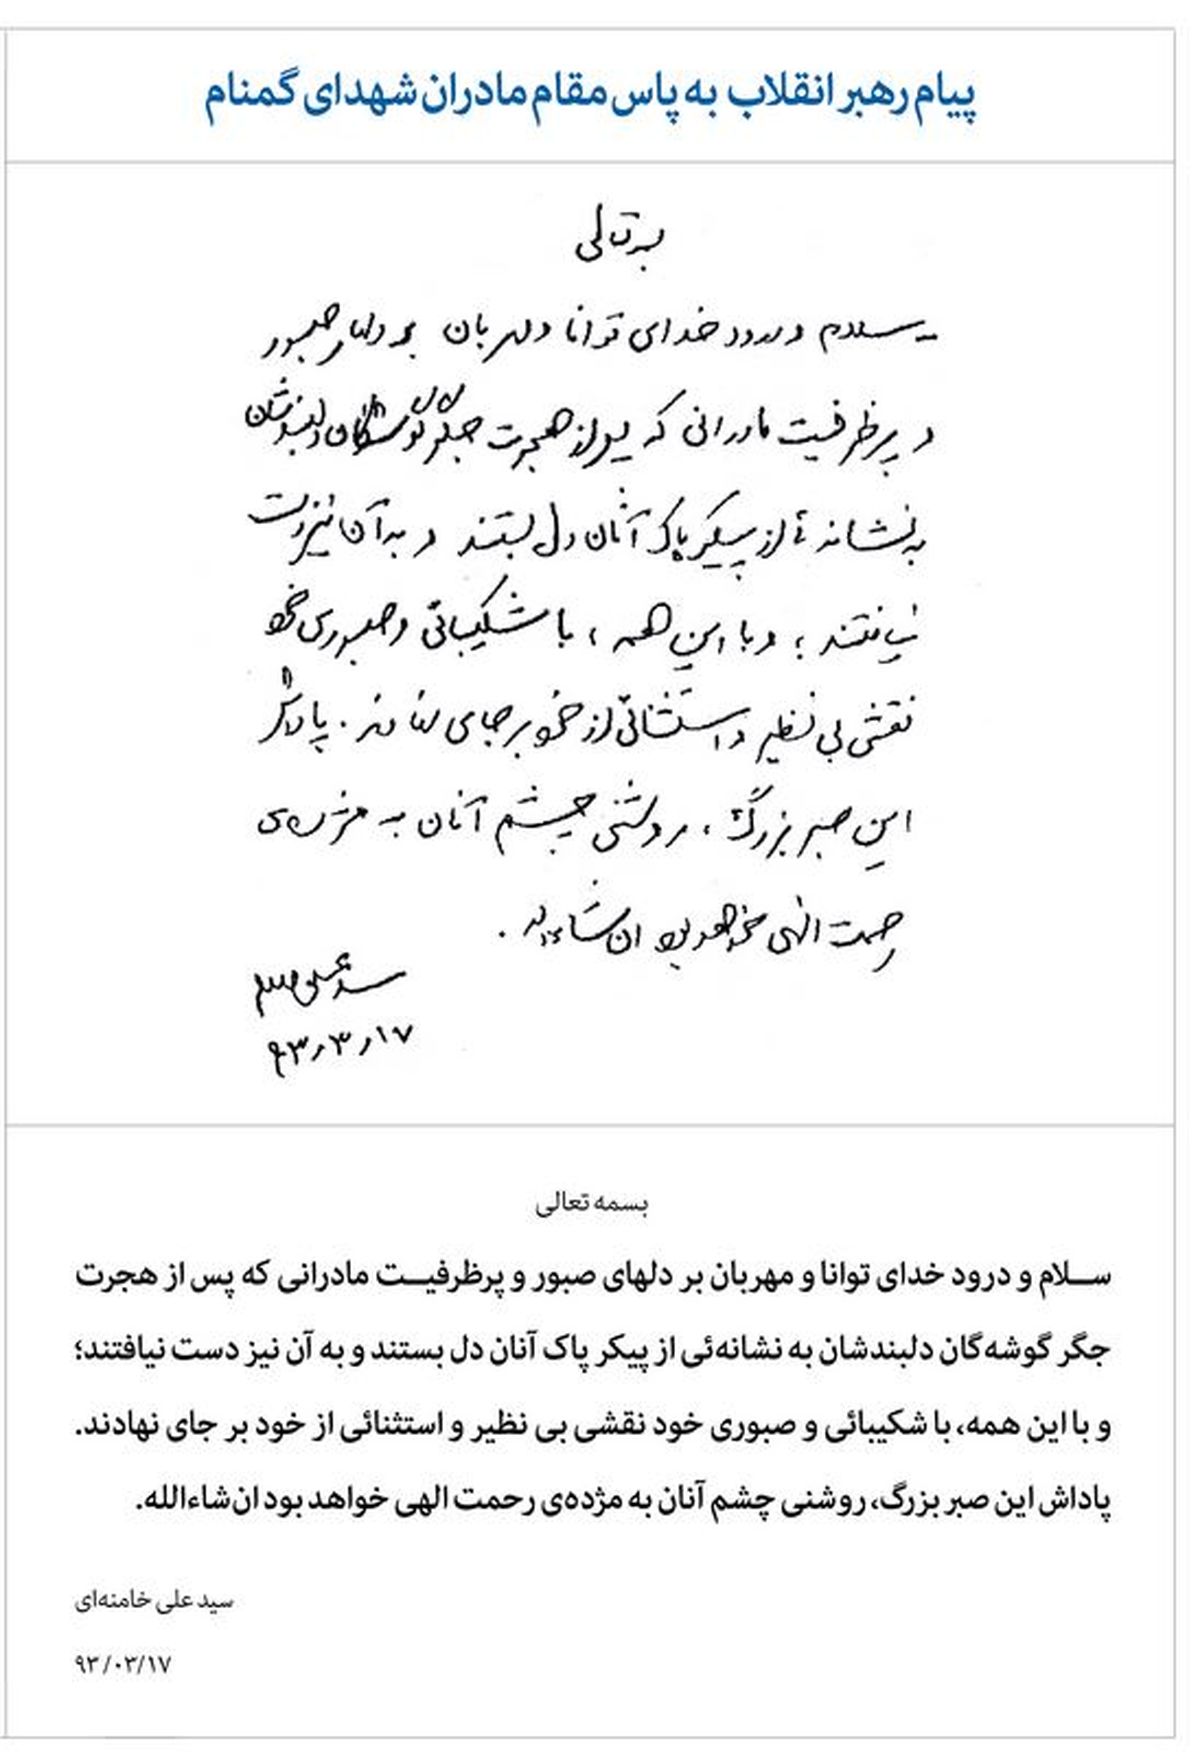 پیام رهبر انقلاب به پاس مقام مادران شهدای گمنام
بسمه تعالی
سلام و درود خدای توانا و مهربان بر دلهای صبور
و پرظرفیت مادرانی که پس از هجرت جگر گوشگان دلبندشان
به نشانه‌ئی از پیکر پاک آنان دل بستند و به آن نیز دست
نیافتند؛ و با این همه، با شکیبائی و صبوری خود
نقشی بی نظیر و استثنائی از خود بر جای نهادند. پاداش
این صبر بزرگ، روشنی چشم آنان به مژده‌ی
رحمت الهی خواهد بود ان شاءالله.
سید علی خامنه‌ای
۹۳٫۳٫۱۷
بسمه تعالی
ســلام و درود خدای توانا و مهربان بر دلهای صبور و پرظرفیــت مادرانی که پس از هجرت
جگر گوشه‌گان دلبندشان به نشانه‌ئی از پیکر پاک آنان دل بستند و به آن نیز دست نیافتند؛
و با این همه، با شکیبائی و صبوری خود نقشی بی نظیر و استثنائی از خود بر جای نهادند.
پاداش این صبر بزرگ، روشنی چشم آنان به مژده‌ی رحمت الهی خواهد بود ان‌شاءالله.
سید علی خامنه‌ای
۹۳/۰۳/۱۷